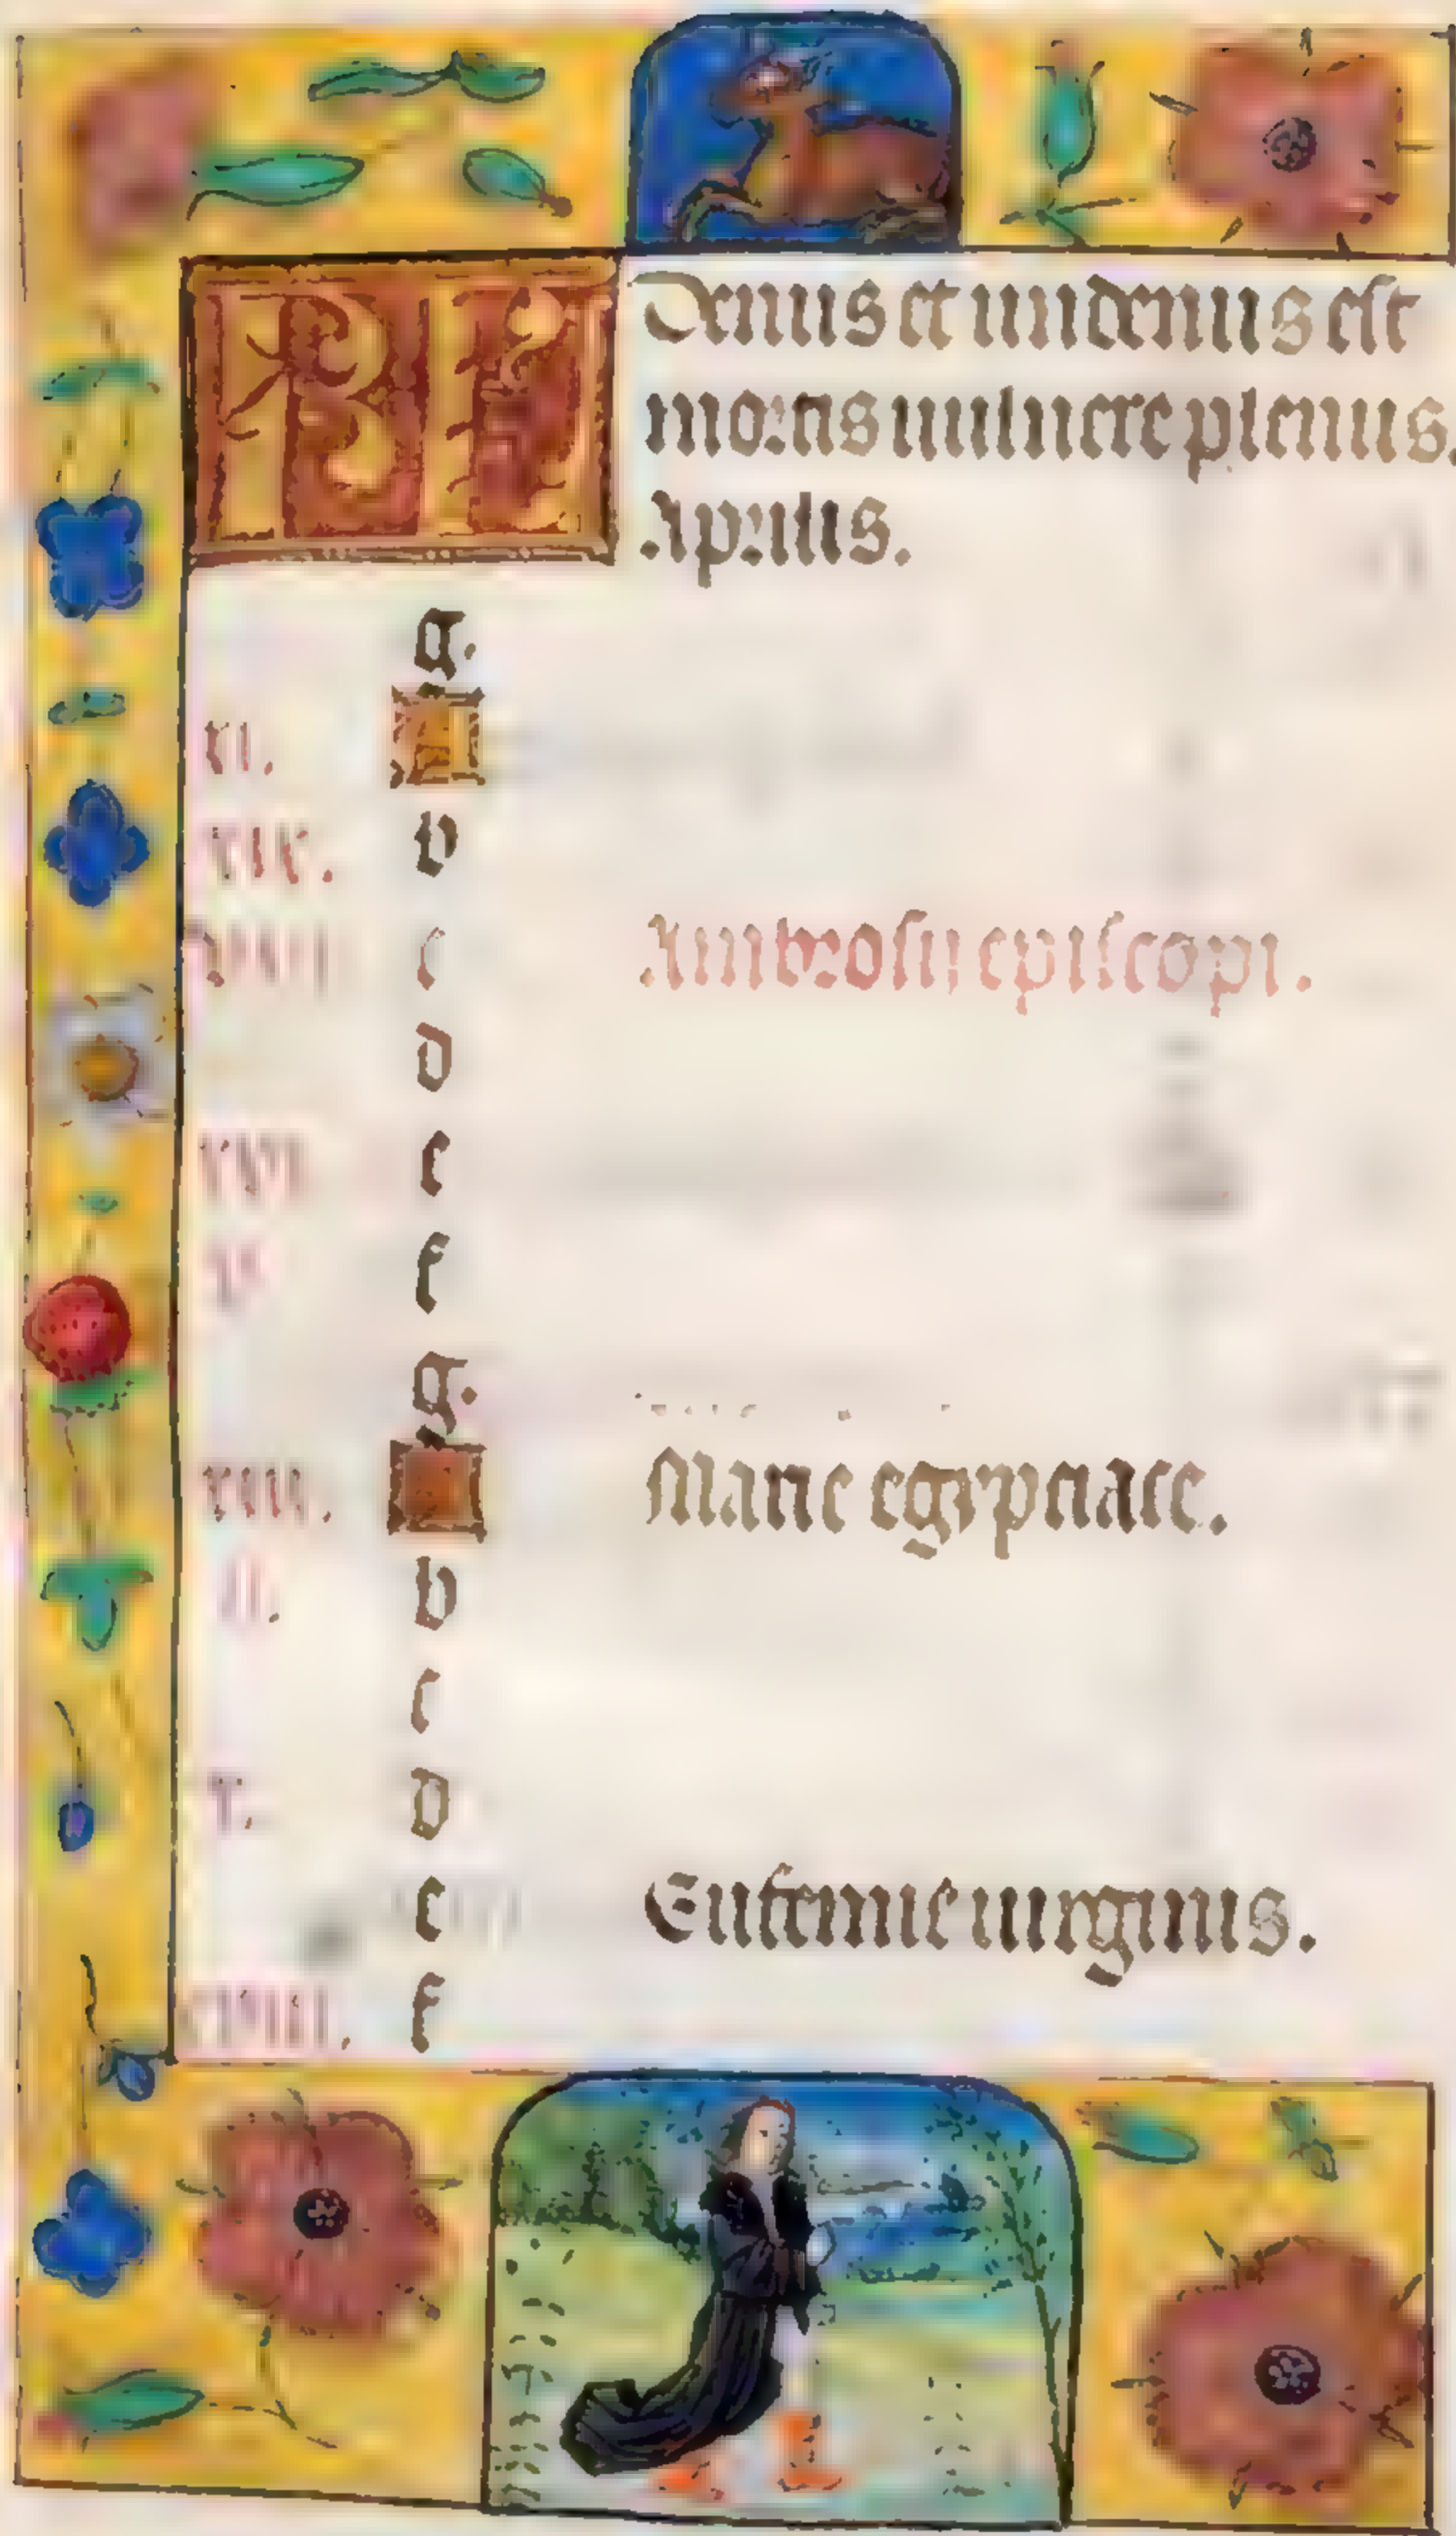 KL Denus et undenus est
mortis uulnere plenus.
Aprilis.
g.
xi. A
xix. b
viii c Ambrosii episcopi.
d
xvi e
v f
g.
xiii. A Marie egipciace.
ii. b
c
x. d
e Eufemie uirginis.
xviii. f